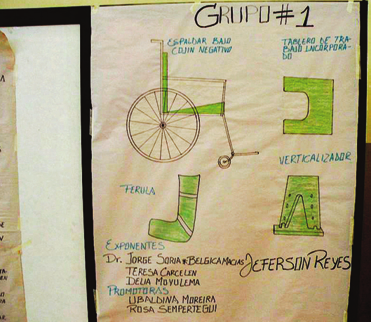 GRUPO #1
ESPALDAR BAJO
COJIN NEGATIVO
TABLERO DE TRA-
BAJO INCORPORA-
DO
VERTICALIZADOR
FERULA
EXPONENTES
Dr. JORGE SORIA * BELGICA MACIAS JEFERSON REYES
TERESA CARCELEN
DELIA MOVULEMA
PROMOTORAS
UBALDINA MOREIRA
ROSA SEMPERTEGUI